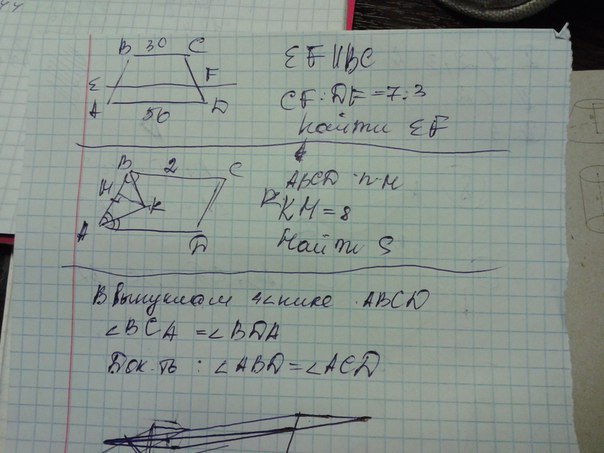 B 30 C
E F
A 50 D
EF || BC
CF : DF = 7:3
Найти EF
B 2 C
H
K
A D
ABCD п-м
KH = 8
Найти S
В выпуклом 4-нике ABCD
∠BCA = ∠BDA
Док-ть : ∠ABD = ∠ACD